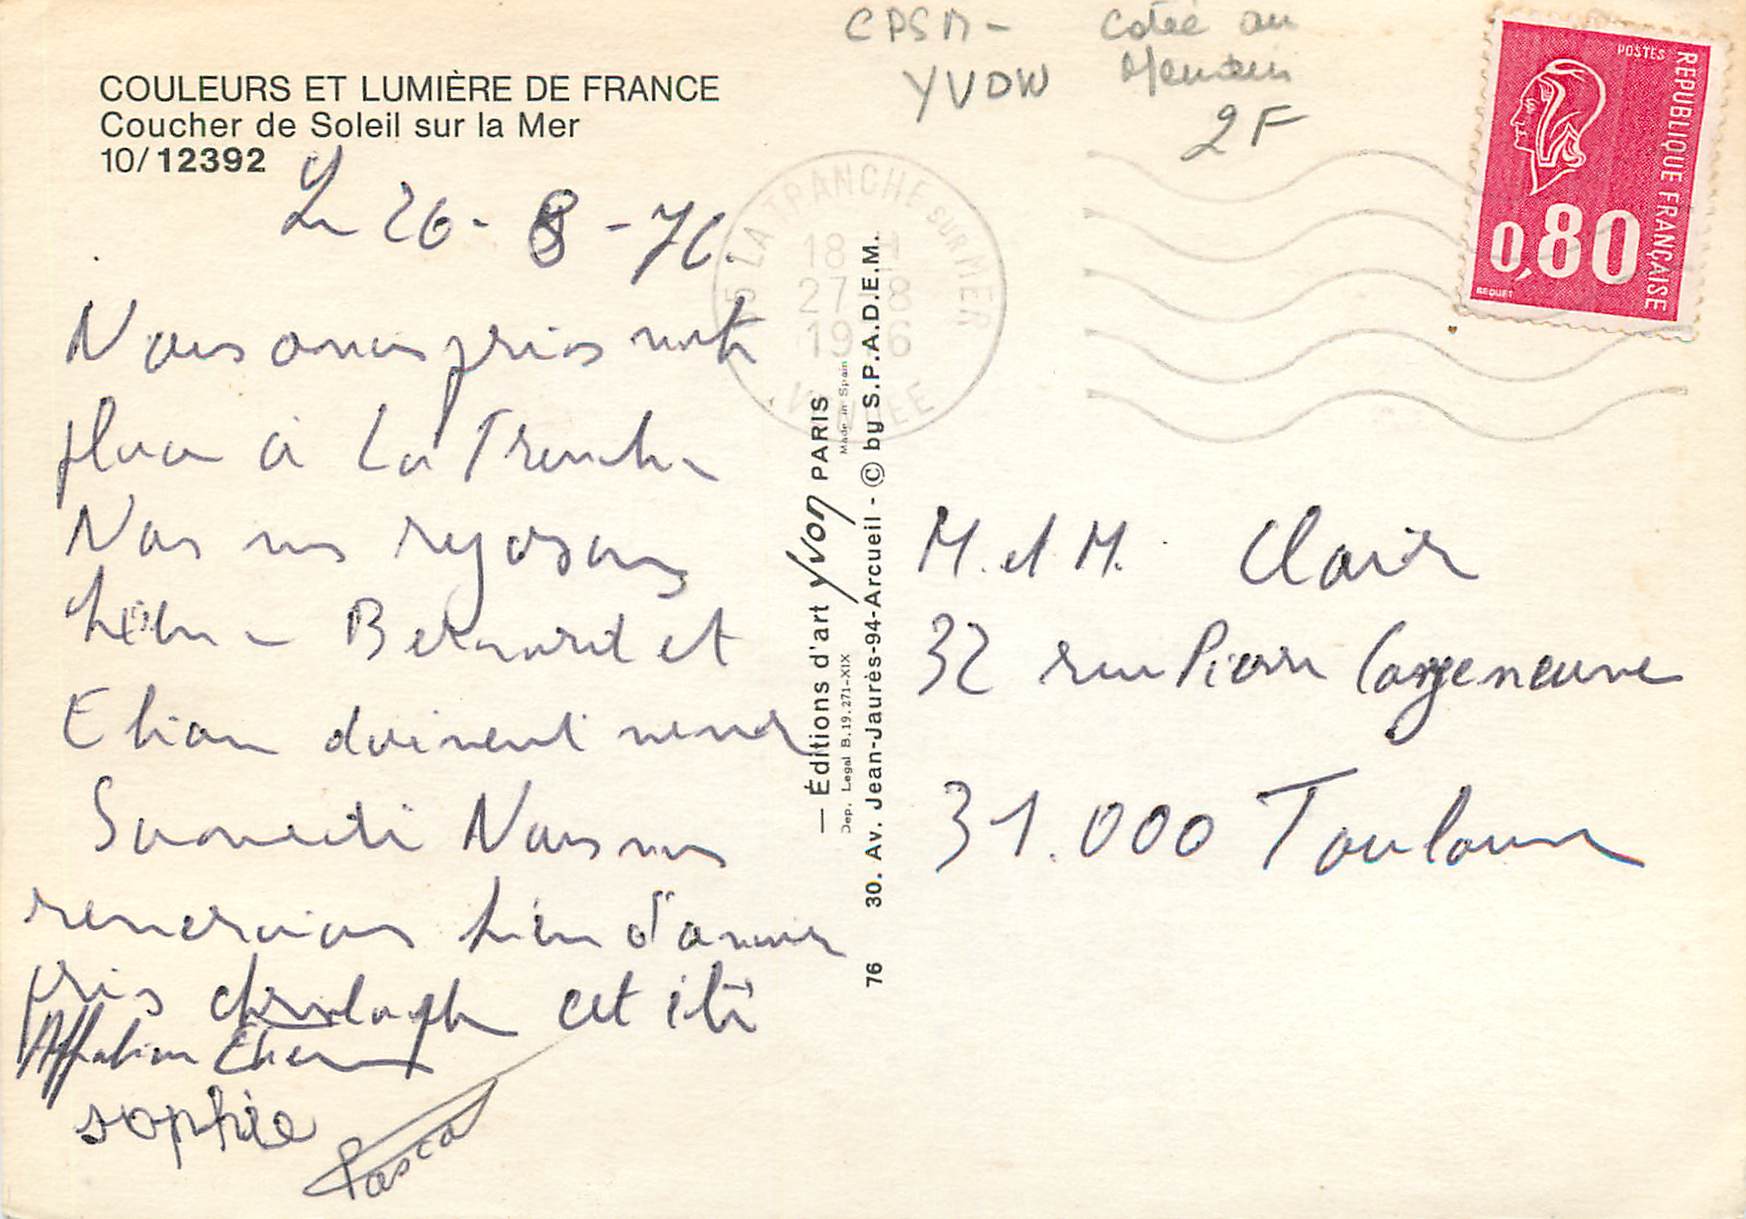 CPSM- Cotée au
YVON Neudin
2F
COULEURS ET LUMIÈRE DE FRANCE
Coucher de Soleil sur la Mer
10/12392
POSTES
REPUBLIQUE FRANÇAISE
0,80
BEQUET
85 LA TRANCHE SUR MER
18 H
27-8
1976
VENDEE
Le 26-8-76.
Nous avons pris notre
place à La Tranche
Nous nous reposons
bien - Bernard et
Eliane doivent venir
Samedi Nous vous
remercions bien d'avoir
pris christophe cet été
Affection Etienne
sophie
Pascal
— Éditions d'art Yvon PARIS
Dep. Legal B.19.271-XIX Made in Spain
76 30. Av. Jean-Jaurès-94-Arcueil - © by S.P.A.D.E.M.
M. et M. Clair
32 rue Pierre Cazeneuve
31.000 Toulouse